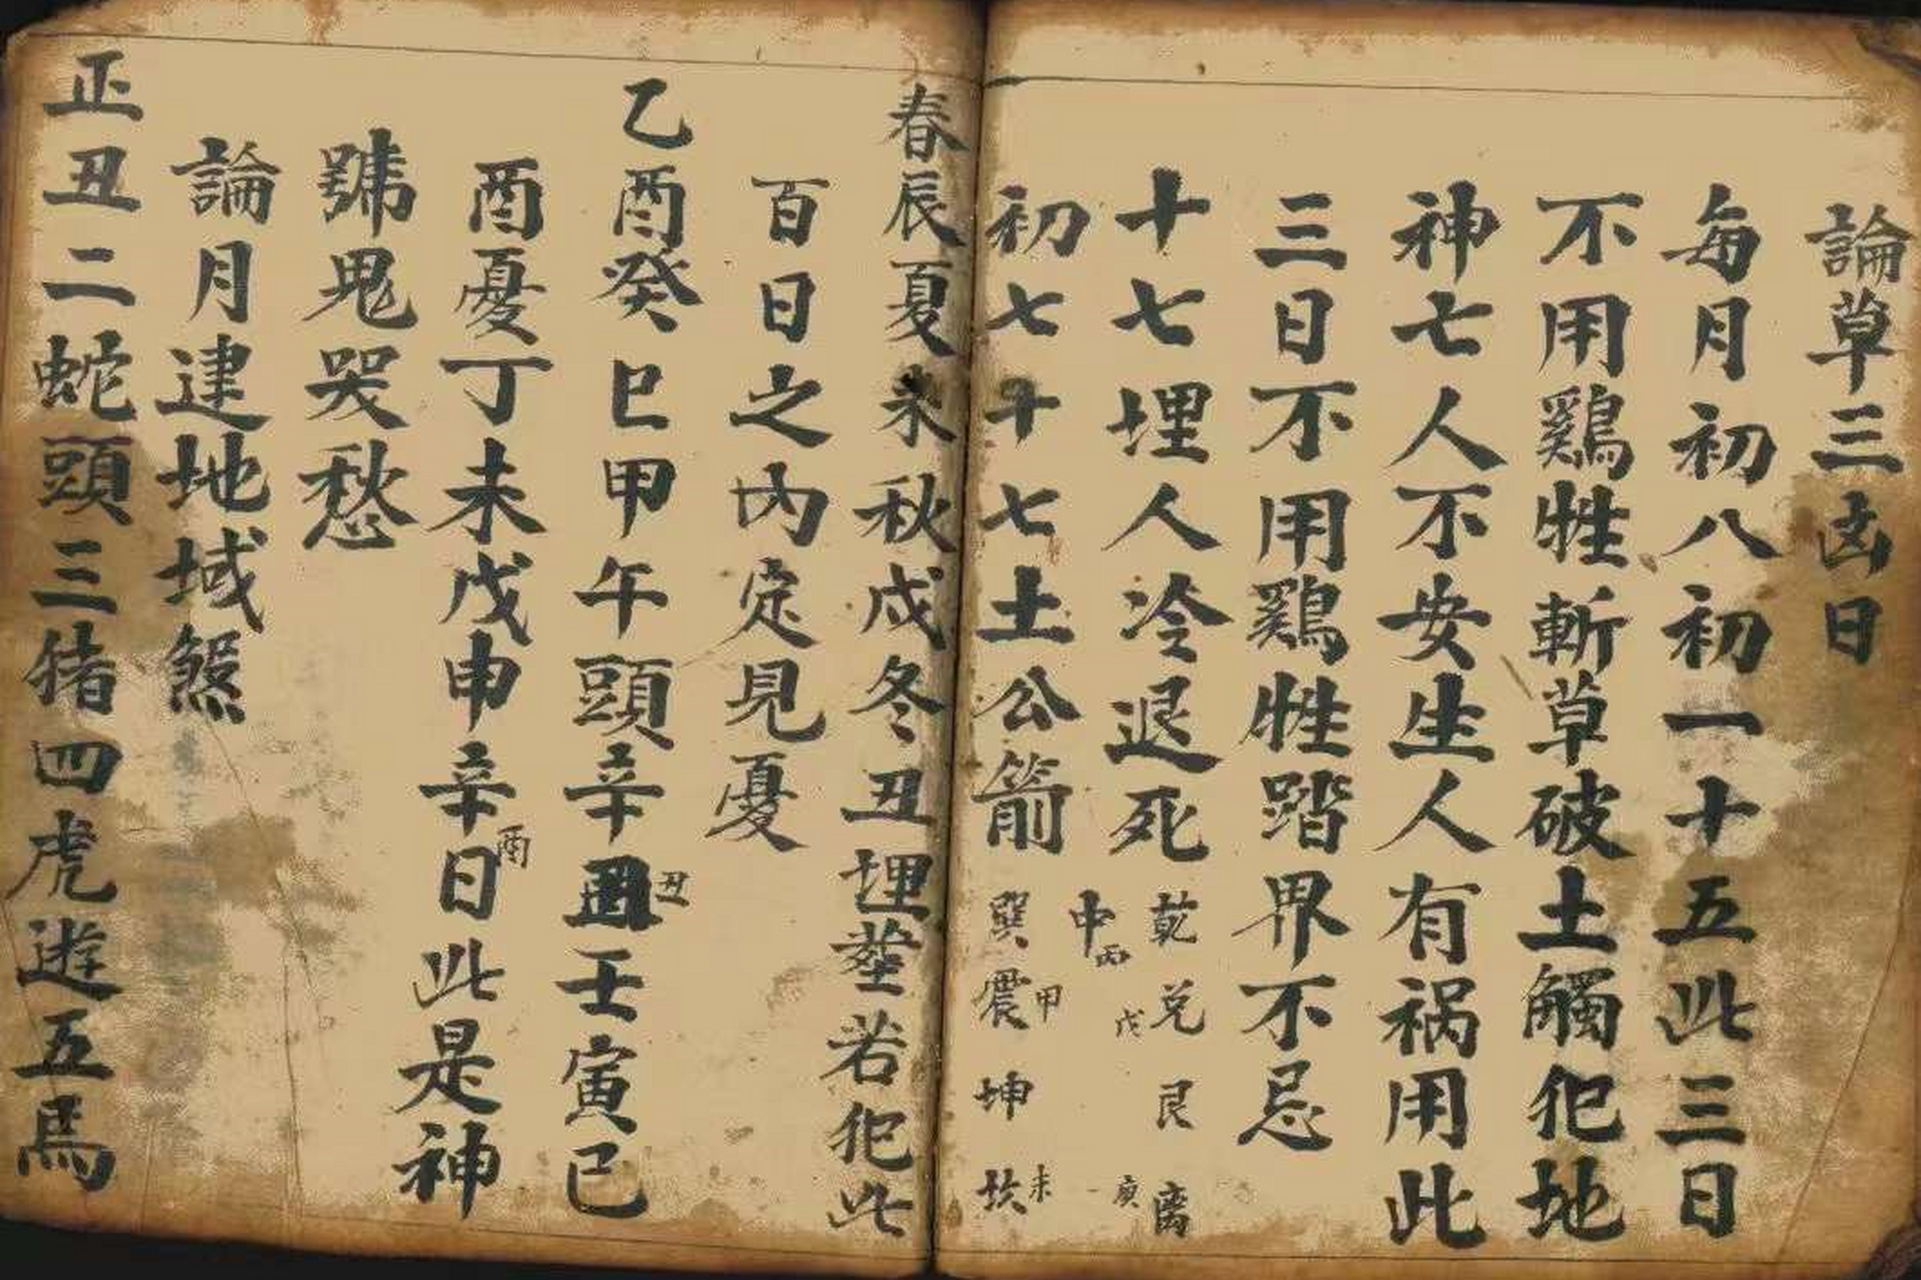 論草三凶日
每月初八初一十五此三日
不用鷄牲斬草破土觸犯地
神七人不安生人有祸用此
三日不用鷄牲踏界不忌
十七埋人冷退死 乾兑艮离
申丙 戊 庚
初七十七土公箭 巽震坤坎
甲 未
春辰夏未秋戍冬丑埋塟若犯此
百日之内定見憂
乙酉癸巳甲午頭辛丑壬寅己
酉憂丁未戊申辛酉日此是神
號鬼哭愁
論月建地域煞
正丑二蛇頭三猪四虎遊五馬